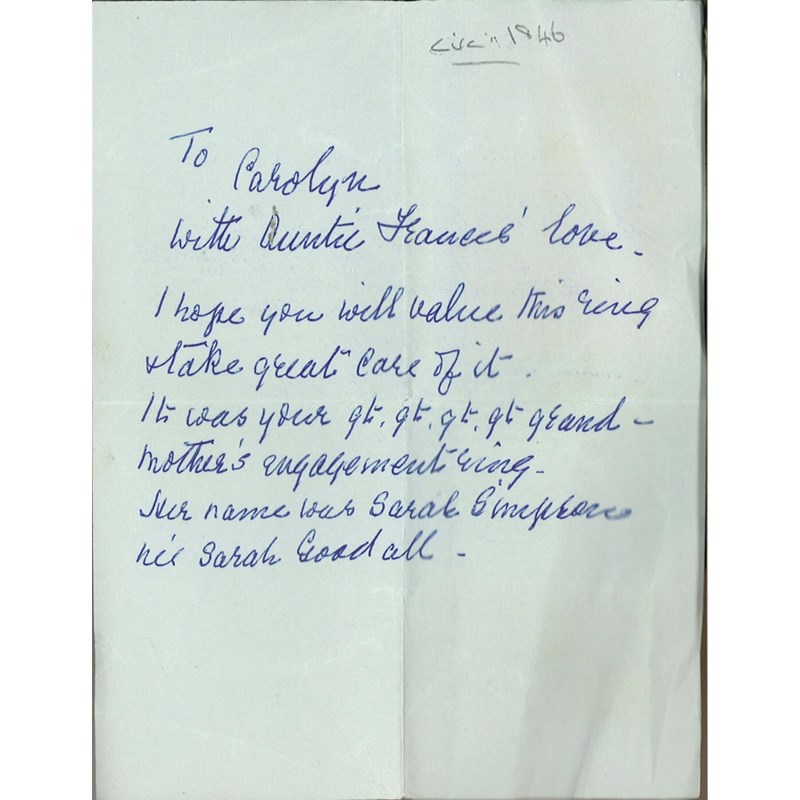 circa 1846
To
Carolyn
with Auntie Frances' love.
I hope you will value this ring
& take great care of it.
It was your gt. gt. gt. gt grand-
mother's engagement ring.
Her name was Sarah Simpson
née Sarah Goodall -